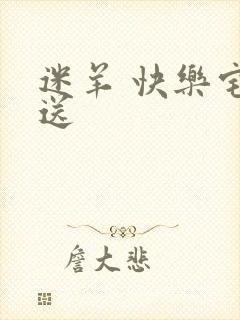 迷羊 快樂宅
送
詹大悲